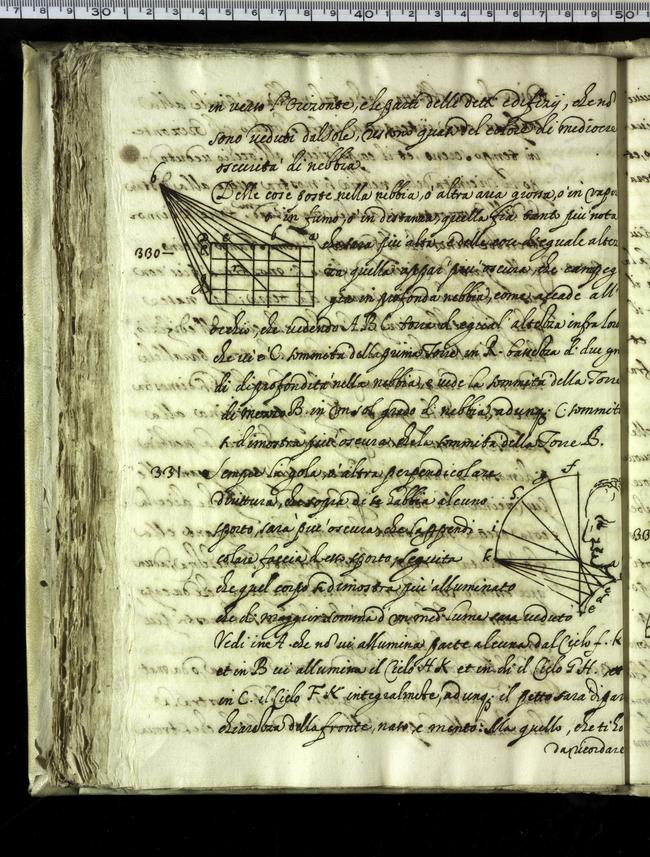 in verso l'Orizonte, e le parti delle dette edifizij, che nõ
sono veduti dal sole, restono quasi del colore di mediocre
oscurità di nebbia.
Delle cose poste nella nebbia, ò altra aria grossa, ò in vapo
ò in fumo, ò in distanza, quella fia tanto più nota
che sera più alta, e delle cose di eguale altez
330 za quella appar più oscura, che campeg
gia in profonda nebbia, come accade all'
occhio, che vedendo A.B.C. torri d'egual' altezza infra loro
che vi è C. sommità della prima Torre in R. bassezza di due gra
di di profondità nella nebbia, e vede la sommità della Torre
di mezzo B. in un sol grado di nebbia, adunq. C. sommità
si dimostra più oscura, che la sommità della Torre B.
331 Sempre la gola, ò altra perpendicolare
dirittura, che sopra di se habbia alcuno
sporto, sarà più oscura, che la ppendi
colare faccia d'esso sporto, seguita
che quel corpo si dimostra più alluminato
che di maggior somma d'un med.º lume sara veduto
Vedi in A. che nõ vi allumina parte alcuna dal Cielo f. K
et in B vi allumina il Cielo H K et in di il Cielo G H. et
in C. il Cielo F. K integralmẽte, adunq. il petto sara di par
chiarezza della fronte, naso, e mento: Ma quello, che ti ho
da ricordare